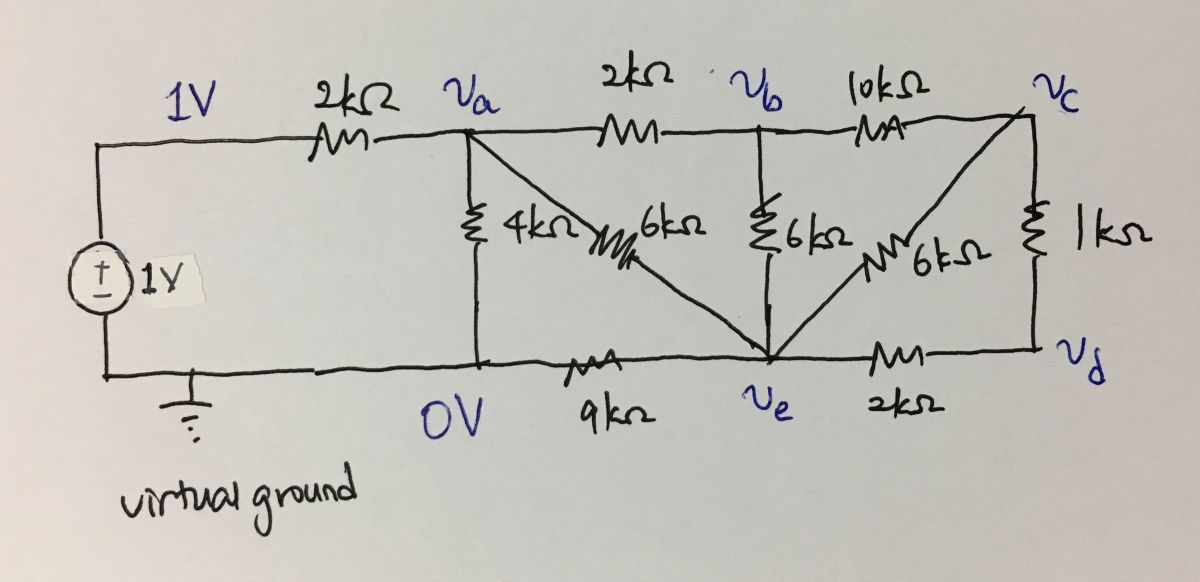 1V 2kΩ va 2kΩ vb 10kΩ vc
4kΩ 6kΩ 6kΩ 6kΩ 1kΩ
+
− 1V
0V 9kΩ ve 2kΩ vd
virtual ground